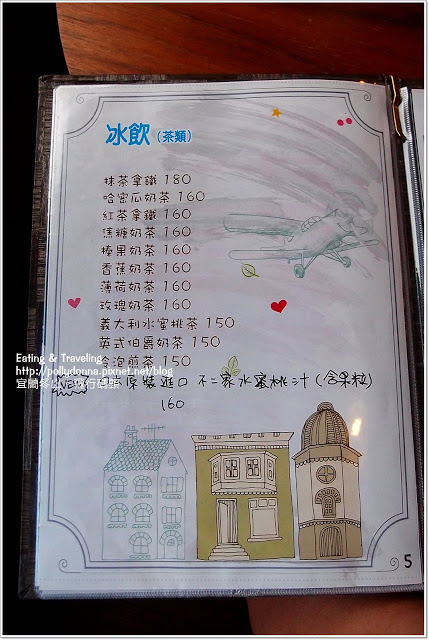 冰飲（茶類）
抹茶拿鐵 180
哈密瓜奶茶 160
紅茶拿鐵 160
焦糖奶茶 160
榛果奶茶 160
香蕉奶茶 160
薄荷奶茶 160
玫瑰奶茶 160
義大利水蜜桃茶 150
英式伯爵奶茶 150
冷泡煎茶 150
原裝進口 不二家水蜜桃汁(含果粒)
160
Eating & Traveling
http://pollydonna.pixnet.net/blog
宜蘭冬山
5